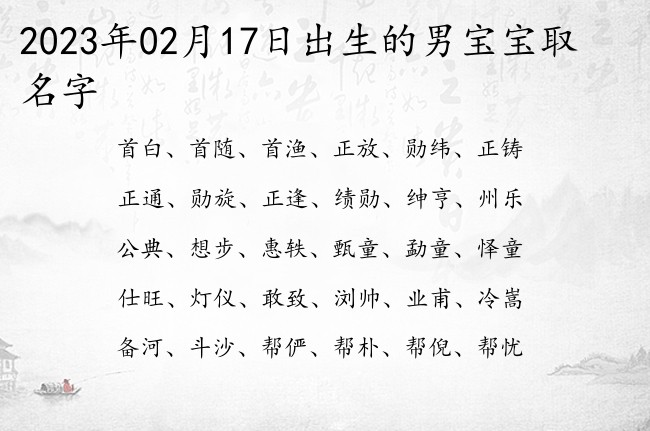 2023年02月17日出生的男宝宝取
名字
首白、首随、首渔、正放、勋纬、正铸
正通、勋旋、正逢、绩勋、绅亨、州乐
公典、想步、惠轶、甄童、勐童、怿童
仕旺、灯仪、敢致、浏帅、业甫、冷嵩
备河、斗沙、帮俨、帮朴、帮倪、帮忧